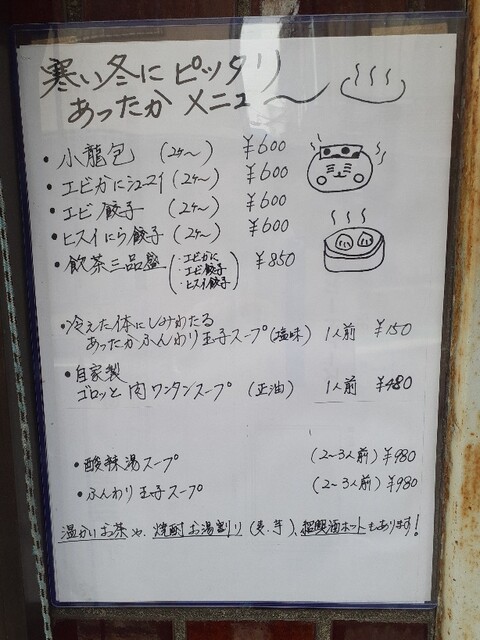 寒い冬にピッタリ
あったかメニュ〜
・小龍包 (2ケ〜) ¥600
・エビかにシュースイ (2ケ〜) ¥600
・エビ餃子 (2ケ〜) ¥600
・ヒスイにら餃子 (2ケ〜) ¥600
・飲茶三品盛 (・エビかに ・エビ餃子 ・ヒスイ餃子) ¥850
・冷えた体にしみわたる
あったかふんわり玉子スープ(塩味) 1人前 ¥150
・自家製
ゴロッと肉ワンタンスープ (正油) 1人前 ¥480
・酸辣湯スープ (2〜3人前) ¥980
・ふんわり玉子スープ (2〜3人前) ¥980
温かいお茶や、焼酎お湯割り (麦、芋)、紹興酒ホットもあります!